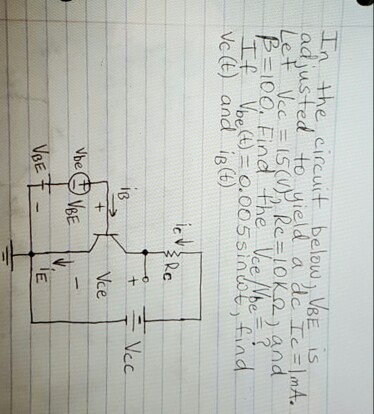 In the circuit below, VBE is
adjusted to yield a dc Ic=1mA.
Let Vcc=15(V), Rc=10KΩ, and
β=100. Find the Vce/Vbe=?
If Vbe(t)=0.005sinωt, find
Vc(t) and iB(t)
ic
Rc
iB
+
Vcc
vbe
+
Vce
VBE
-
VBE
-
iE